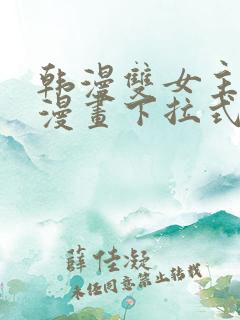 韩漫雙女主
漫畫下拉式
薛佳凝
未经同意禁止转载